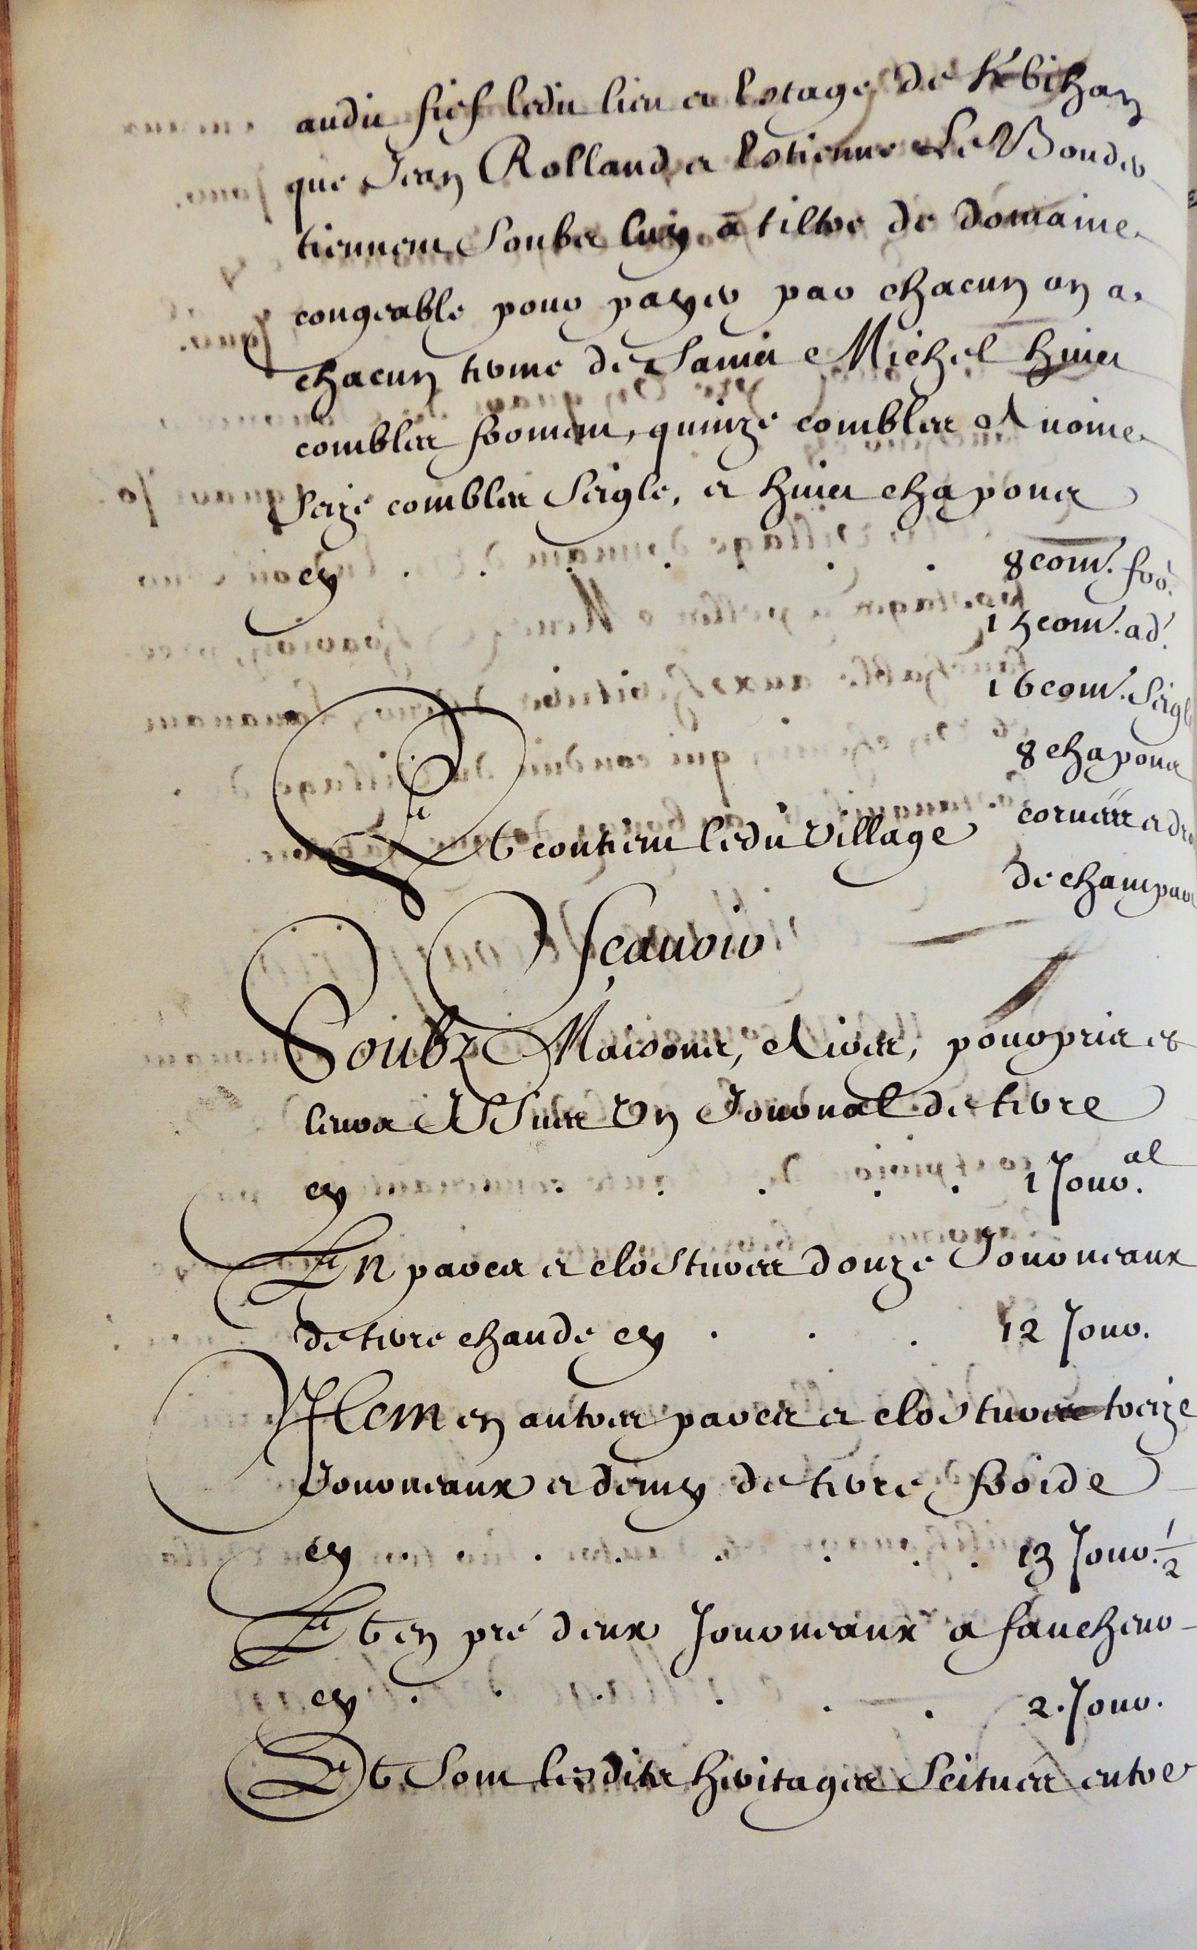 audit fief ledit lieu et Estage de K/bihan
que Jean Rolland et Estienne Le Bouder
tiennent Soubz luy a tiltre de domaine
congeable pour payer par chacun an a
chacun terme de Saint Michel huict
combles froment, quinze combles Avoine
Seize combles Seigle, et huict chapons
cy . . . . . . 8 com. fro.
15 com. ad.
16 com. Seigle
8 chapons
corvées et dr
de champar
Et contient ledit village
Sçavoir
Soubz Maisons, Aires, pourpris et
leurs Issues Un Journal de terre
cy . . . . . 1 Jour.al
En parcs et clostures douze Journeaux
de terre chaude cy . . . 12 Jour.
Item en autres parcs et clostures treize
Journeaux et demy de terre froide
cy . . . . . 13 Jour. 1/2
Et en pré deux Journeaux a faucheur
cy . . . . . 2. Jour.
Et Sont lesdits heritages Scitués entre